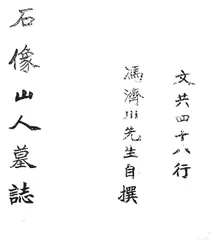 文共四十八行
馮濟川先生自撰
石像山人墓誌